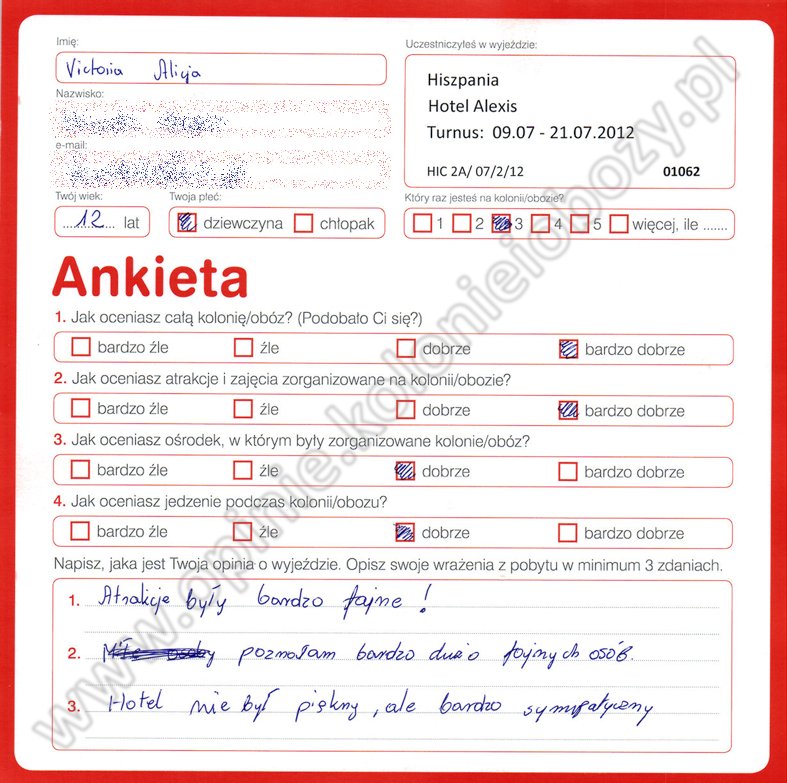 Imię:
Victoria Alicja
Nazwisko:
e-mail:
Twój wiek:
12 lat
Twoja płeć:
dziewczyna chłopak
Uczestniczyłeś w wyjeździe:
Hiszpania
Hotel Alexis
Turnus: 09.07 - 21.07.2012
HIC 2A/ 07/2/12 01062
Który raz jesteś na kolonii/obozie?
1 2 3 4 5 więcej, ile .......
Ankieta
1. Jak oceniasz całą kolonię/obóz? (Podobało Ci się?)
bardzo źle źle dobrze bardzo dobrze
2. Jak oceniasz atrakcje i zajęcia zorganizowane na kolonii/obozie?
bardzo źle źle dobrze bardzo dobrze
3. Jak oceniasz ośrodek, w którym były zorganizowane kolonie/obóz?
bardzo źle źle dobrze bardzo dobrze
4. Jak oceniasz jedzenie podczas kolonii/obozu?
bardzo źle źle dobrze bardzo dobrze
Napisz, jaka jest Twoja opinia o wyjeździe. Opisz swoje wrażenia z pobytu w minimum 3 zdaniach.
1. Atrakcje były bardzo fajne!
2. poznałam bardzo dużo fajnych osób.
3. Hotel nie był piękny, ale bardzo sympatyczny
www.opinie.kolonieiobozy.pl